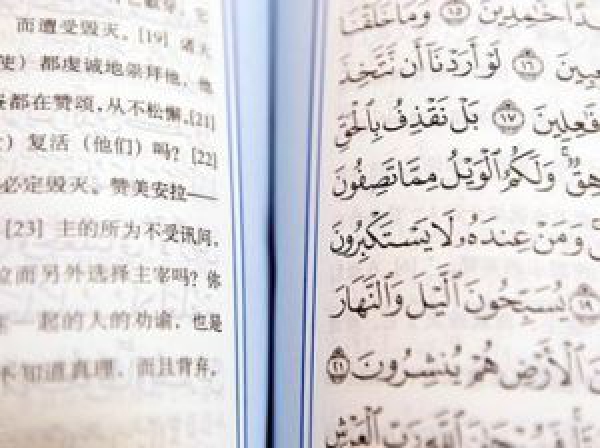 而遭受毁灭。[19] 诸天
使）都虔诚地崇拜他，他
都在赞颂，从不松懈。[21]
）复活（他们）吗？[22]
必定毁灭。赞美安拉——
[23] 主的所为不受讯问，
而另外选择主宰吗？你
一起的人的劝谕，也是
不知道真理，而且背弃。
خَٰمِدِينَ ١٥ وَمَا خَلَقْنَا
١٦ لَوْ أَرَدْنَآ أَن نَّتَّخِذَ
فَٰعِلِينَ ١٧ بَلْ نَقْذِفُ بِٱلْحَقِّ
وَلَكُمُ ٱلْوَيْلُ مِمَّا تَصِفُونَ
وَمَنْ عِندَهُۥ لَا يَسْتَكْبِرُونَ
١٩ يُسَبِّحُونَ ٱلَّيْلَ وَٱلنَّهَارَ
ٱلْأَرْضِ هُمْ يُنشِرُونَ ٢١
ٱللَّهِ رَبِّ ٱلْعَرْشِ